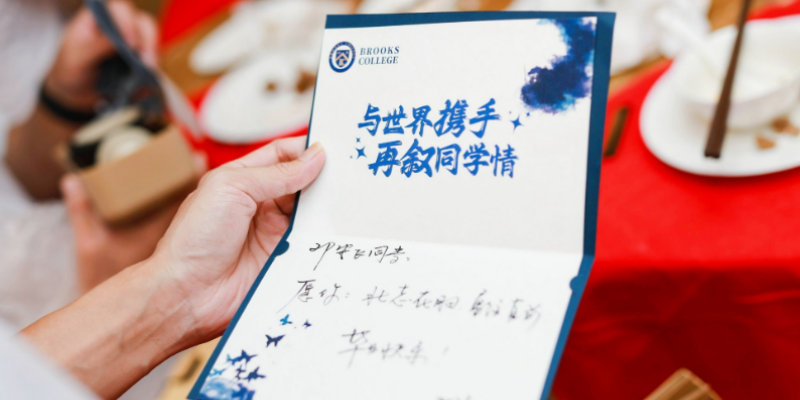 BROOKS
COLLEGE
与世界携手
再叙同学情
愿你：壮志在胸
毕业快乐！